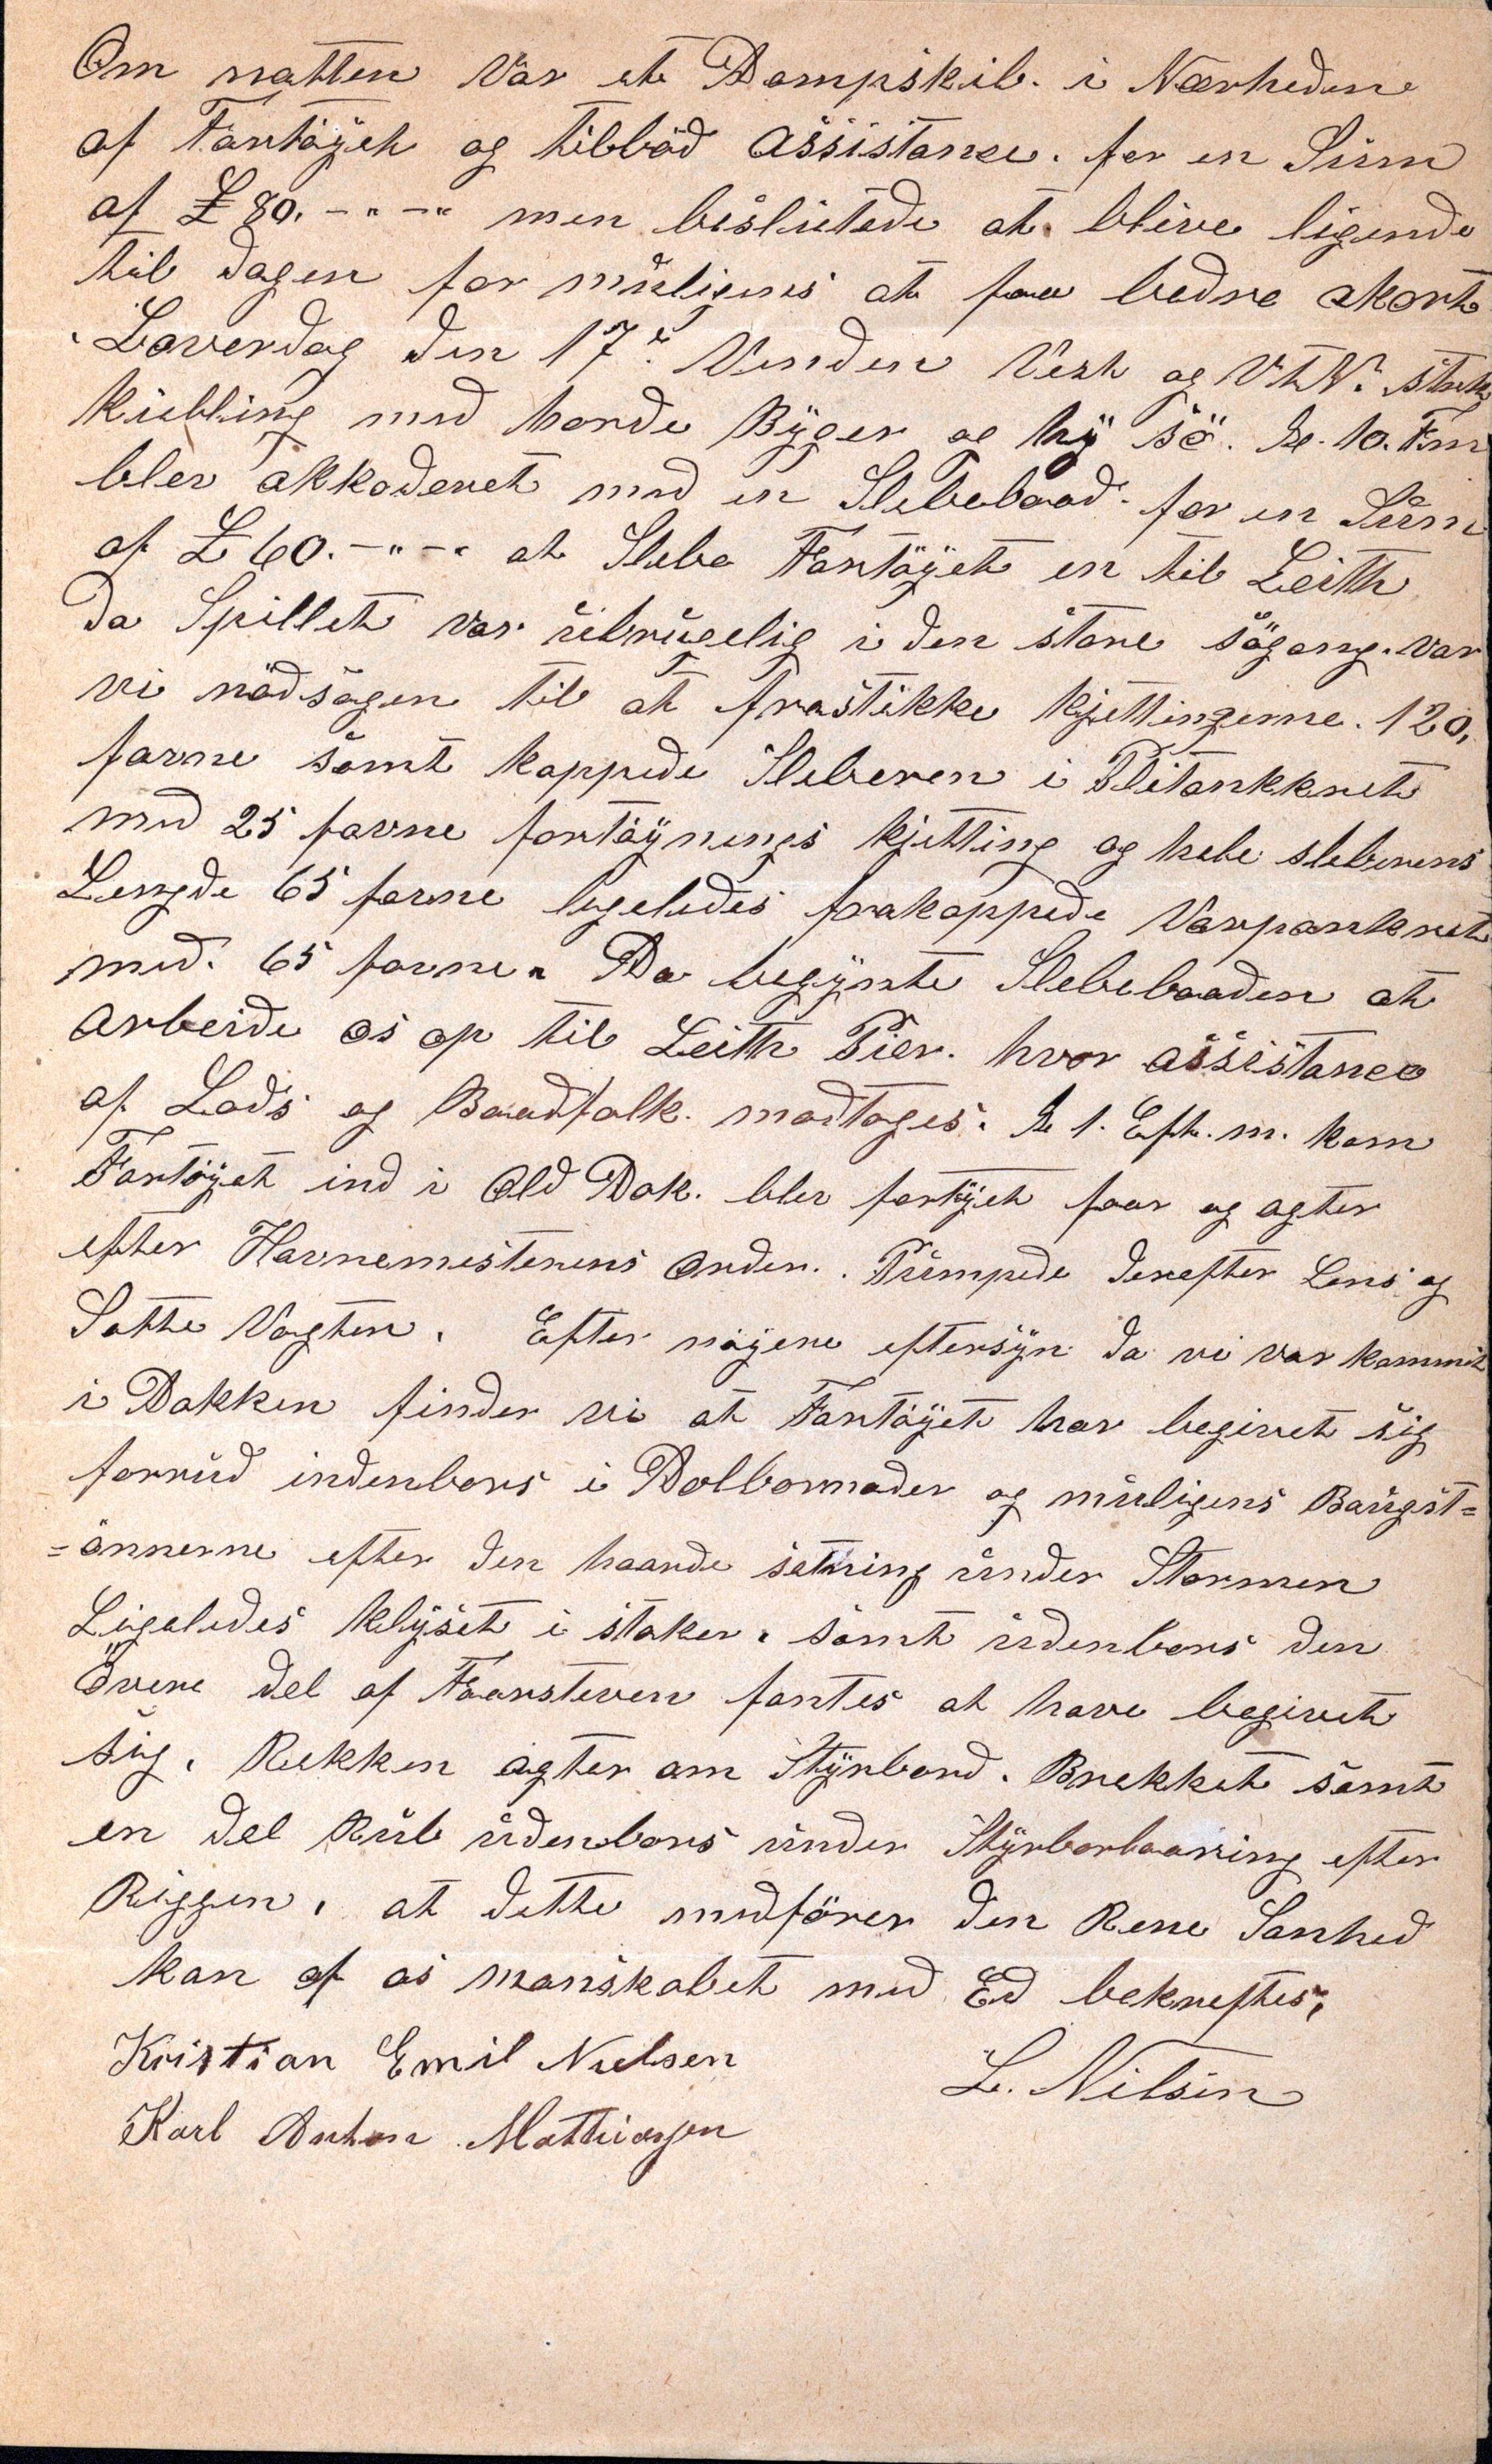 Om natten Var et Dampskib. i Nærheden
af Fartöyet og tilböd Assistance. for en Sum
af £ 80. - " - " men beslutede at blive ligende
til dagen for muligens at faa bedre akort
Löverdag den 17de Vinden Vest og VtN. sterk
Kuhling med harde Byger og hy sö. Kl. 10. Fm
blev akkoderet med en Slebebaad for en Sum
af £ 60. - " - " at Slebe Fartöyet in til Leith
Da Spillet var übrügelig i den store sögang. var
vi nödsagen til at frastikke kjettingerne. 120,
favne samt kappede Sleberen i Plitankkret
med 25 favne fortöynings kjetting og hele sleberens
Lengde 65 favne ligeledes frakappede Varpankret
med. 65 favne. Da begynte Slebebaaden at
Arbeide os op til Leith Pier. hvor assistance
af Lods og Baadfolk. modtoges. Kl 1. Eft. m. kom
Fartöyet ind i Old Dok. blev fortöyet foor og agter
efter Havnemesterens Order.. Pumpede derefter Lens og
Satte Vagten. Efter nöyere eftersyn da vi var kommit
i Dokken finder vi at Fartöyet har begivet sig
forrud indenbors i Dolbornader og muligens Baugst=
=önnerne efter den haarde sætning under Stormen
Ligeledes klyset i støker. samt udenbors den
övere del af Foorsteven fantes at have begivet
sig. Rekken agter om Styrbord. Brekket samt
en del Kub udenbors under Styrborlaaring efter
Riggen. at dette medförer den Rene Sanhed
kan af os manskabet med Ed bekreftes,
Kristian Emil Nielsen L. Nilsen
Karl Anton Mathiasen